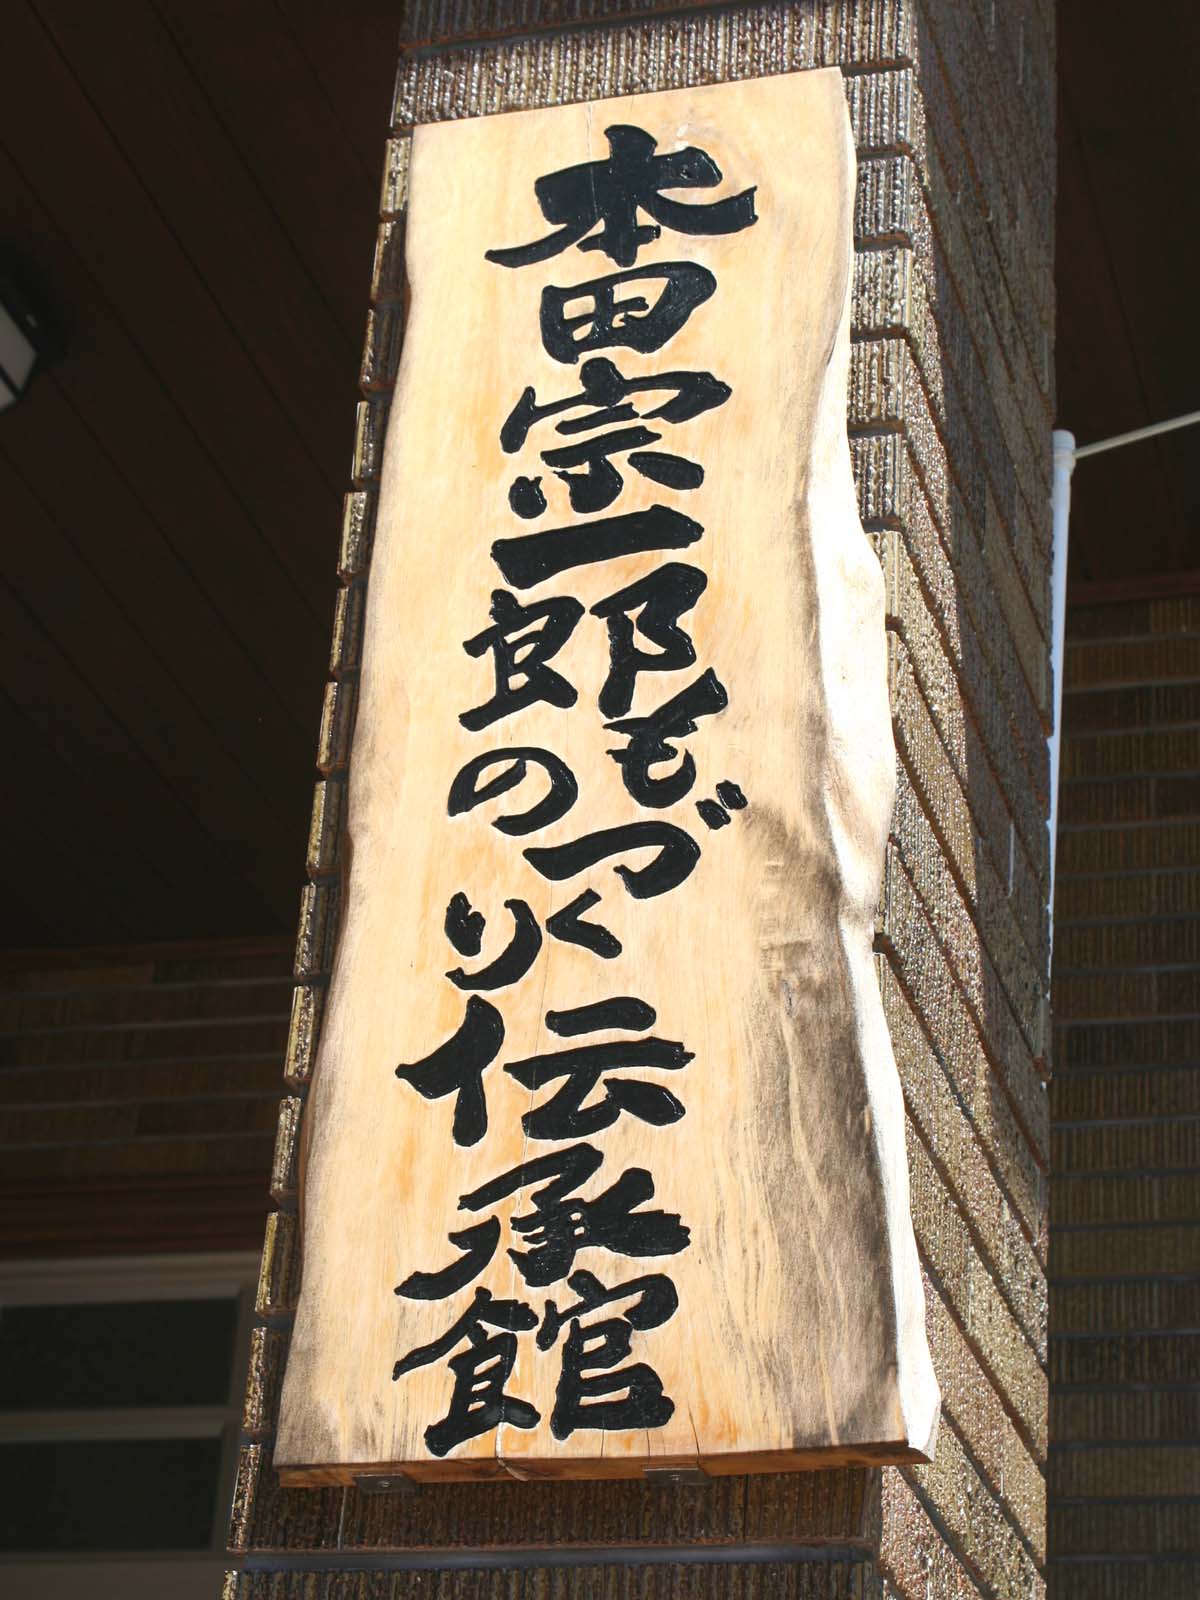 本田宗一郎ものづくり伝承館